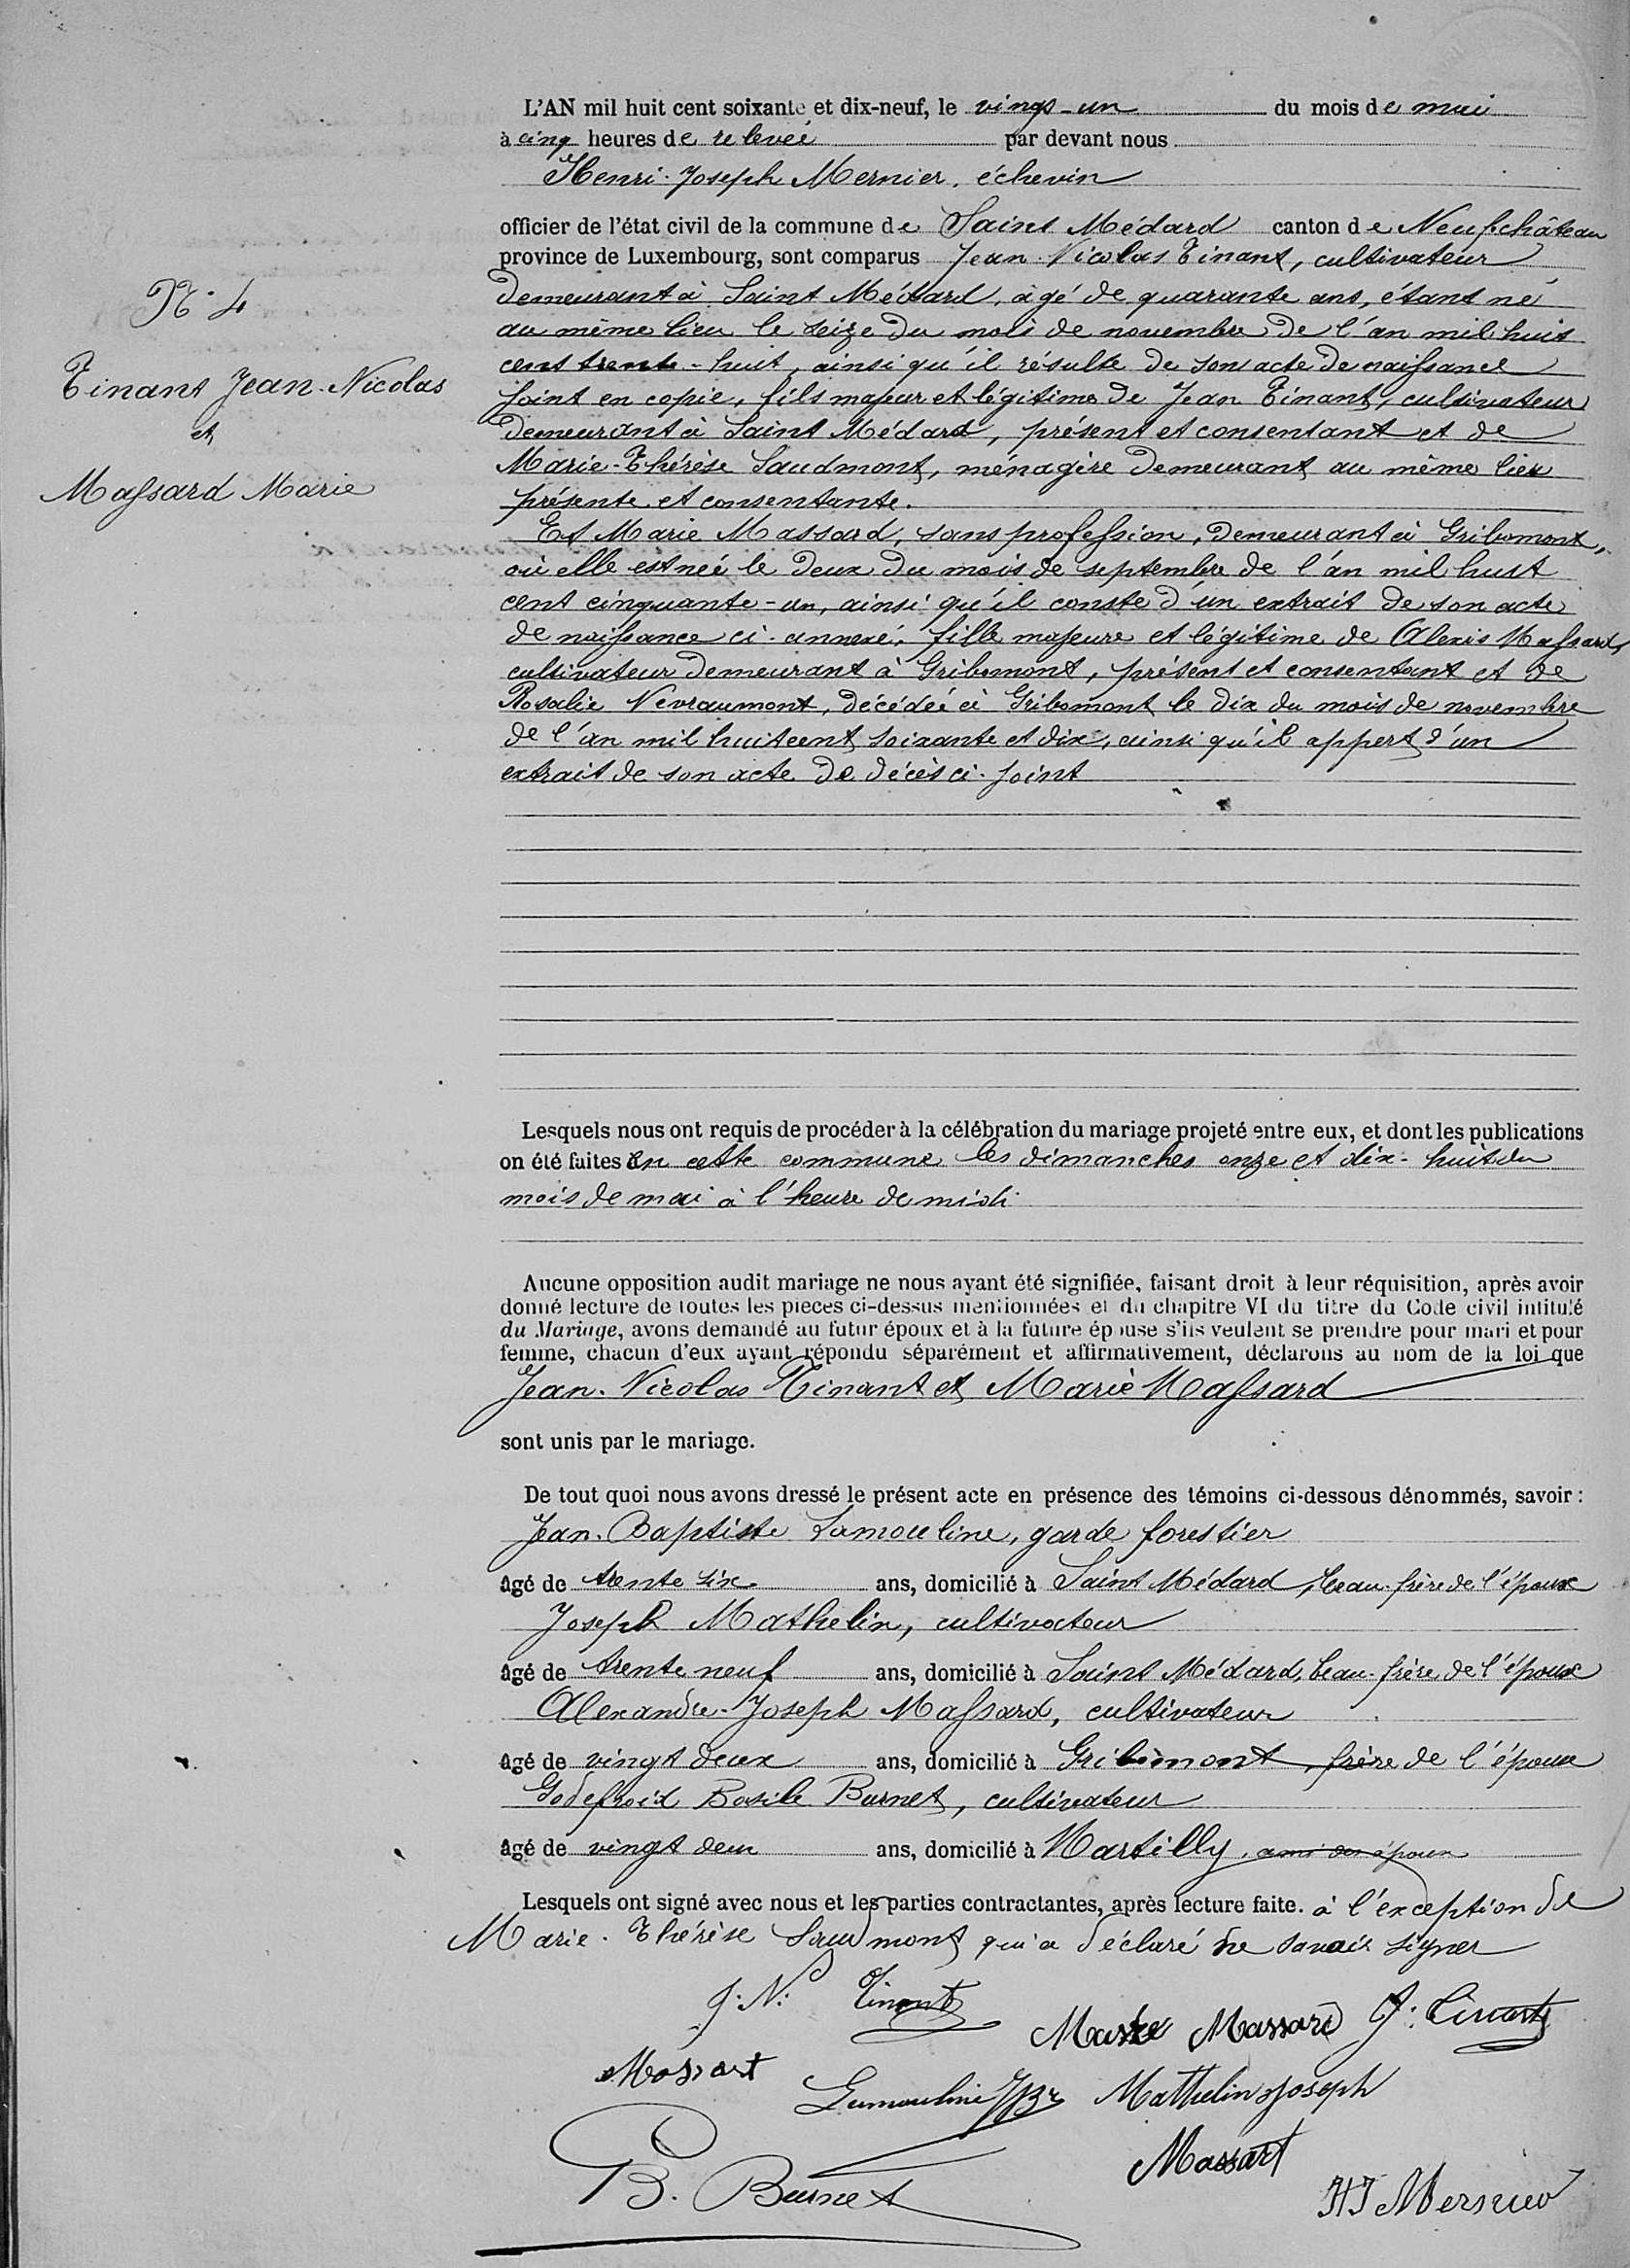 L'AN mil huit cent soixante et dix-neuf, le vingt-un du mois de mai
à cinq heures de relevée par devant nous
Henri-Joseph Mernier, échevin
officier de l'état civil de la commune de Saint Médard canton de Neufchâteau
province de Luxembourg, sont comparus Jean-Nicolas Tinant, cultivateur
demeurant à Saint Médard, âgé de quarante ans, étant né
au même lieu le seize du mois de novembre de l'an mil huit
cent trente-huit, ainsi qu'il résulte de son acte de naissance
N° 4
Tinant Jean-Nicolas
et
Massard Marie
joint en copie, fils majeur et légitime de Jean Tinant, cultivateur
demeurant à Saint Médard, présent et consentant et de
Marie-Thérèse Saudmont, ménagère demeurant au même lieu
présente et consentante.
Et Marie Massard, sans profession, demeurant à Gribomont,
où elle est née le deux du mois de septembre de l'an mil huit
cent cinquante-un, ainsi qu'il conste d'un extrait de son acte
de naissance ci-annexé, fille majeure et légitime de Alexis Massard,
cultivateur demeurant à Gribomont, présent et consentant et de
Rosalie Nevraumont, décédée à Gribomont le dix du mois de novembre
de l'an mil huit cent soixante et dix, ainsi qu'il appert d'un
extrait de son acte de décès ci-joint
Lesquels nous ont requis de procéder à la célébration du mariage projeté entre eux, et dont les publications
on été faites en cette commune les dimanches onze et dix-huit du
mois de mai à l'heure de midi
Aucune opposition audit mariage ne nous ayant été signifiée, faisant droit à leur réquisition, après avoir
donné lecture de toutes les pieces ci-dessus mentionnées et du chapitre VI du titre du Code civil intitulé
du Mariage, avons demandé au futur époux et à la future épouse s'ils veulent se prendre pour mari et pour
femme, chacun d'eux ayant répondu séparément et affirmativement, déclarons au nom de la loi que
Jean-Nicolas Tinant et Marie Massard
sont unis par le mariage.
De tout quoi nous avons dressé le présent acte en présence des témoins ci-dessous dénommés, savoir :
Jean-Baptiste Lamouline, garde forestier
âgé de trente six ans, domicilié à Saint Médard, beau-frère de l'époux
Joseph Mathelin, cultivateur
âgé de trente neuf ans, domicilié à Saint Médard, beau-frère de l'époux
Alexandre-Joseph Massard, cultivateur
âgé de vingt deux ans, domicilié à Gribomont, frère de l'épouse
Godefroid Basile Burnet, cultivateur
âgé de vingt deux ans, domicilié à Martilly, ami des époux
Lesquels ont signé avec nous et les parties contractantes, après lecture faite. à l'exception de
Marie-Thérèse Saudmont qui a déclaré ne savoir signer
J. N. Tinant
Marie Massard J. Tinant
Massart
Lamouline JBte Mathelin Joseph
Massart
B. Burnet
HJ Mernier